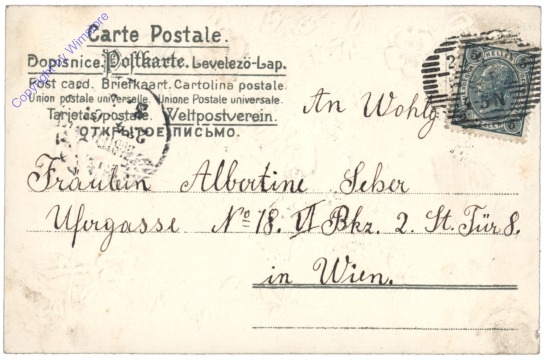 Carte Postale.
Dopisnice. Postkarte. Levelező-Lap.
Post card. Briefkaart. Cartolina postale.
Union postale universelle. Unione Postale universale.
Tarjetas postale. Weltpostverein.
ОТКРЫТОЕ ПИСЬМО.
Copyright by Wimstore
An Wohlg
Fräulein Albertine Seher
Ufergasse No 18. VI Bkz. 2. St. Tür 8.
in Wien.